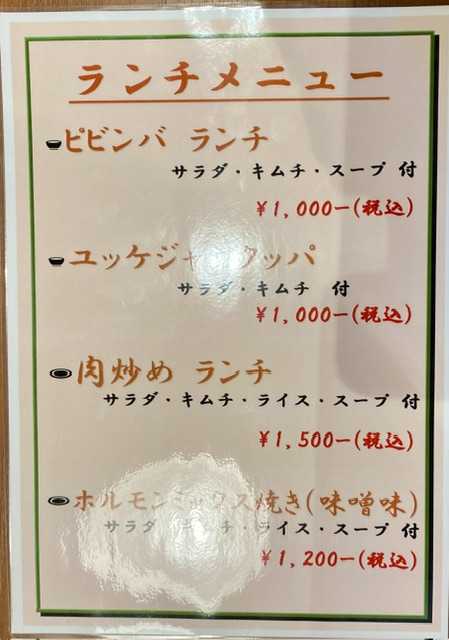 ランチメニュー
ピビンバ ランチ
サラダ・キムチ・スープ 付
¥1,000ー(税込)
ユッケジャンクッパ
サラダ・キムチ 付
¥1,000ー(税込)
肉炒め ランチ
サラダ・キムチ・ライス・スープ 付
¥1,500ー(税込)
ホルモンミックス焼き(味噌味)
サラダ・キムチ・ライス・スープ付
¥1,200ー(税込)